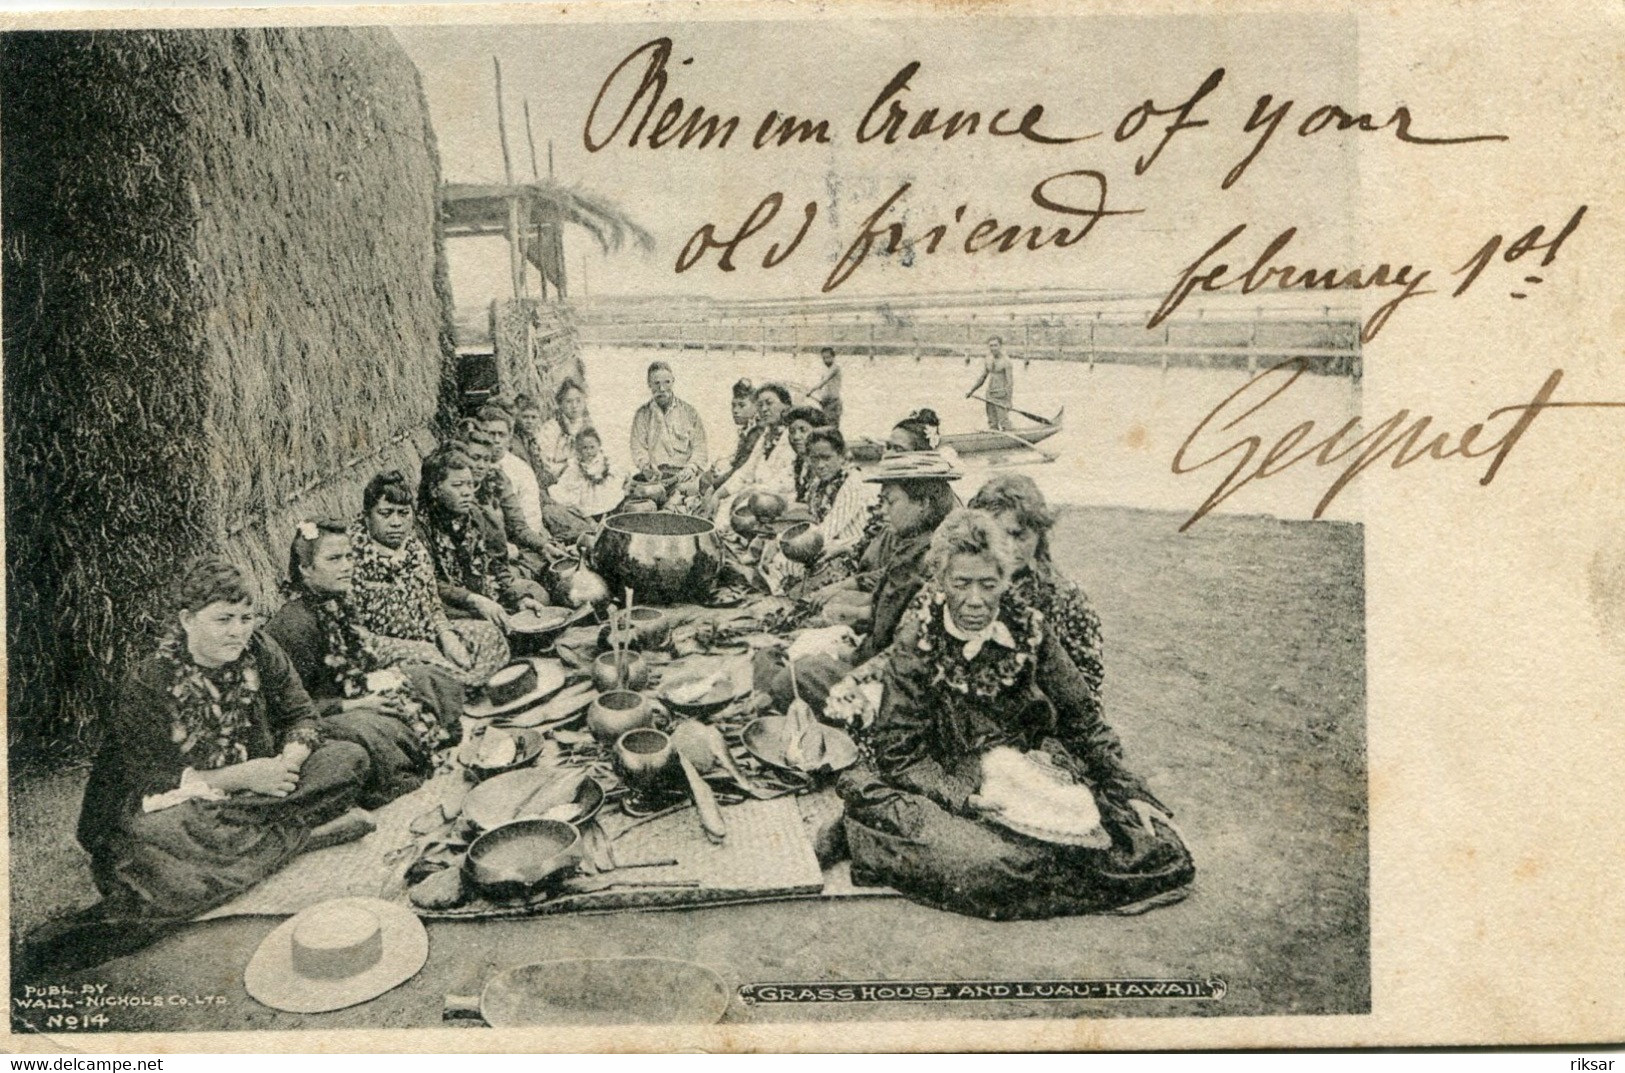 Rememmbrance of your
old friend
february 1st
PUBL. BY
WALL-NICHOLS CO. LTD.
No 14
GRASS HOUSE AND LUAU-HAWAII.
delcampe.net
riksar